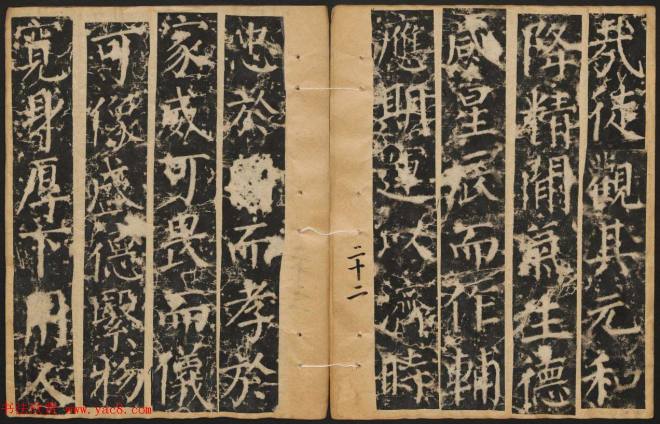 哉徒觀其元和
降精閒氣生德
感星辰而作輔
應期運以濟時
二十二
忠於而孝於
家威可畏而儀
可像盛德繄物
寬身厚下用人
书法欣赏 www.yac8.com